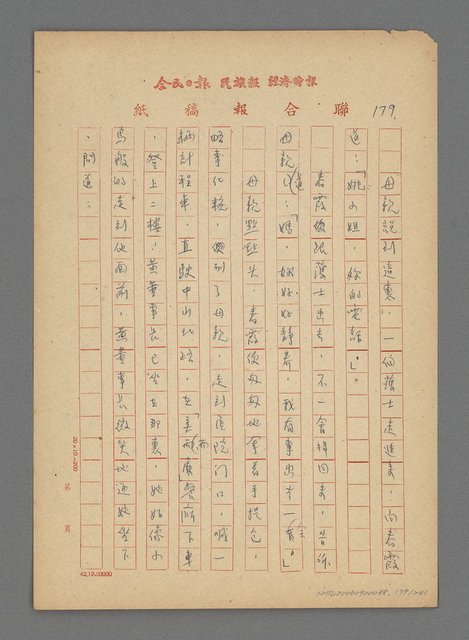 全民日報 民族報 經濟時報
聯合報稿紙
179
母親說到這裏，一個護士走進來，向春霞
道：「姚小姐，妳的電話。」
春霞便跟護士出去，不一會轉回來，告訴
母親道：「媽，妳好好靜養，我有事出去一會。」
母親點點头，春霞便匆匆地拿着手提包，
略事化粧，側別了母親，走到医院门口，喊一
輛計程車，直駛中山北路，在「美而廉」餐廳下車
，登上二樓，黄董事長已坐在那裏，她好像小
鳥般的走到他面前，黄董事長微笑地迎她坐下
，問道：
20×10=200
第 頁
42.12.50000
NMTL20060900088, 179/241